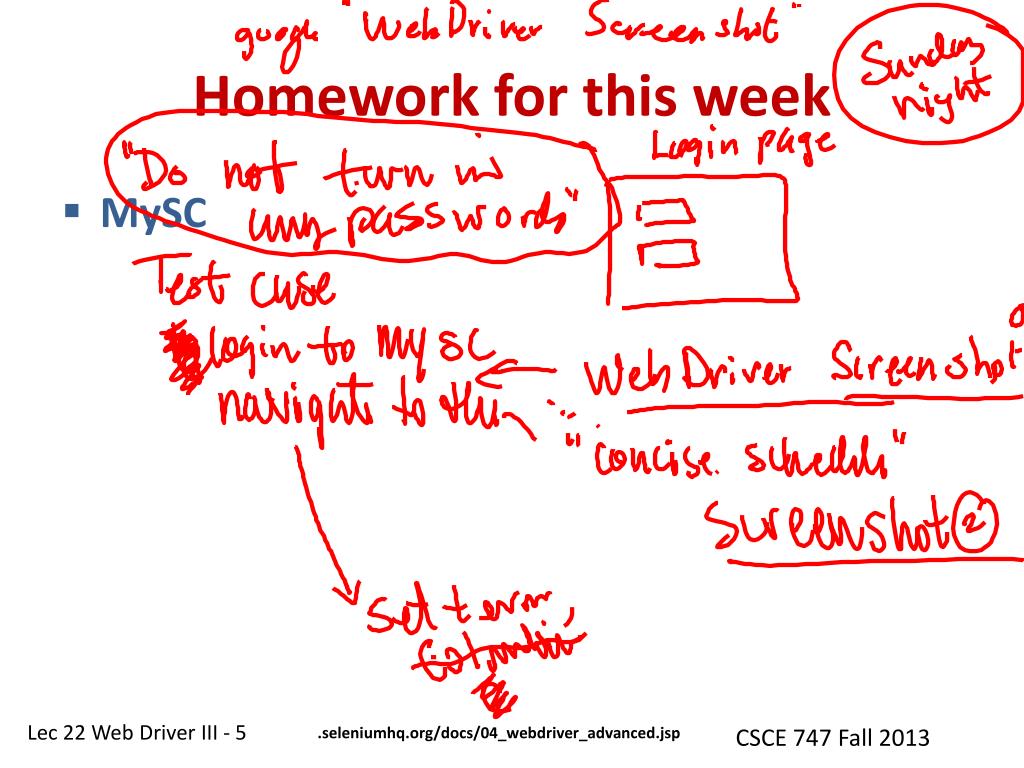 google "WebDriver Screenshot"
Sunday
night
Homework for this week
Login page
"Do not turn in
any passwords"
▪ MySC
Test case
login to My SC
navigate to the
WebDriver Screenshot
"concise schedule"
Screenshot 2
Set term,
Lec 22 Web Driver III - 5
.seleniumhq.org/docs/04_webdriver_advanced.jsp
CSCE 747 Fall 2013